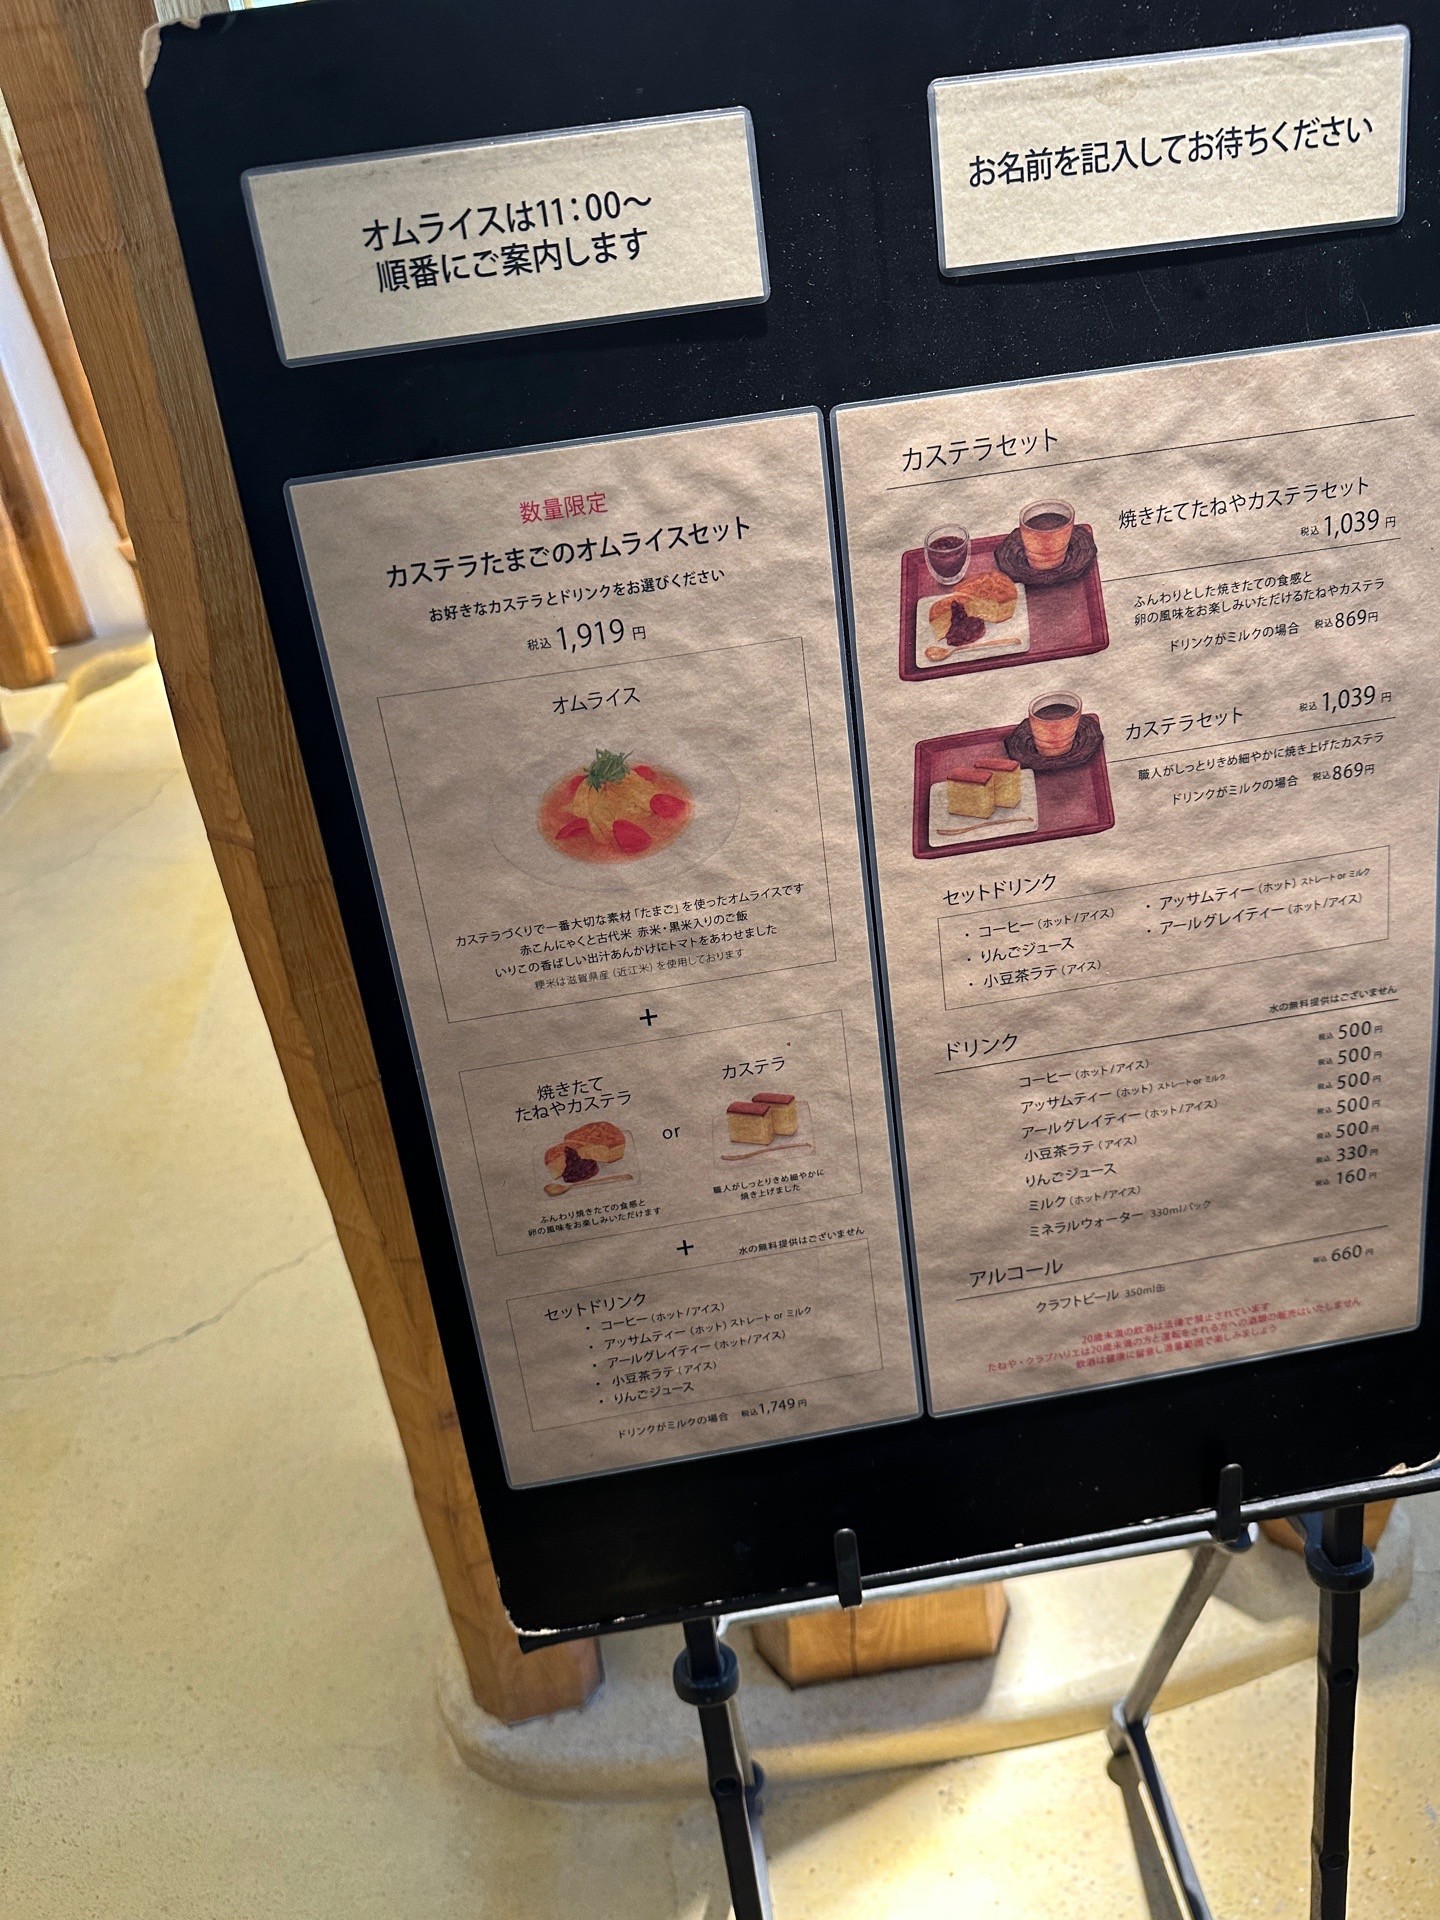 オムライスは11:00〜
順番にご案内します
お名前を記入してお待ちください
数量限定
カステラたまごのオムライスセット
お好きなカステラとドリンクをお選びください
税込1,919円
オムライス
カステラづくりで一番大切な素材「たまご」を使ったオムライスです
赤こんにゃくと古代米 赤米・黒米入りのご飯
いりこの香ばしい出汁あんかけにトマトをあわせました
粳米は滋賀県産(近江米)を使用しております
+
焼きたて
たねやカステラ
ふんわり焼きたての食感と
卵の風味をお楽しみいただけます
or
カステラ
職人がしっとりきめ細やかに
焼き上げました
+
水の無料提供はございません
セットドリンク
・ コーヒー(ホット/アイス)
・ アッサムティー(ホット)ストレート or ミルク
・ アールグレイティー(ホット/アイス)
・ 小豆茶ラテ(アイス)
・ りんごジュース
ドリンクがミルクの場合 税込1,749円
カステラセット
焼きたてたねやカステラセット
税込1,039円
ふんわりとした焼きたての食感と
卵の風味をお楽しみいただけるたねやカステラ
ドリンクがミルクの場合 税込869円
カステラセット 税込1,039円
職人がしっとりきめ細やかに焼き上げたカステラ
ドリンクがミルクの場合 税込869円
セットドリンク
・ コーヒー(ホット/アイス)
・ りんごジュース
・ 小豆茶ラテ(アイス)
・ アッサムティー(ホット)ストレート or ミルク
・ アールグレイティー(ホット/アイス)
水の無料提供はございません
ドリンク
コーヒー(ホット/アイス) 税込500円
アッサムティー(ホット)ストレート or ミルク 税込500円
アールグレイティー(ホット/アイス) 税込500円
小豆茶ラテ(アイス) 税込500円
りんごジュース 税込500円
ミルク(ホット/アイス) 税込330円
ミネラルウォーター 330mlパック 税込160円
アルコール
クラフトビール 350ml缶 税込660円
20歳未満の飲酒は法律で禁止されています
たねや・クラブハリエは20歳未満の方と運転をされる方への酒類の販売はいたしません
飲酒は健康に留意し適量範囲で楽しみましょう